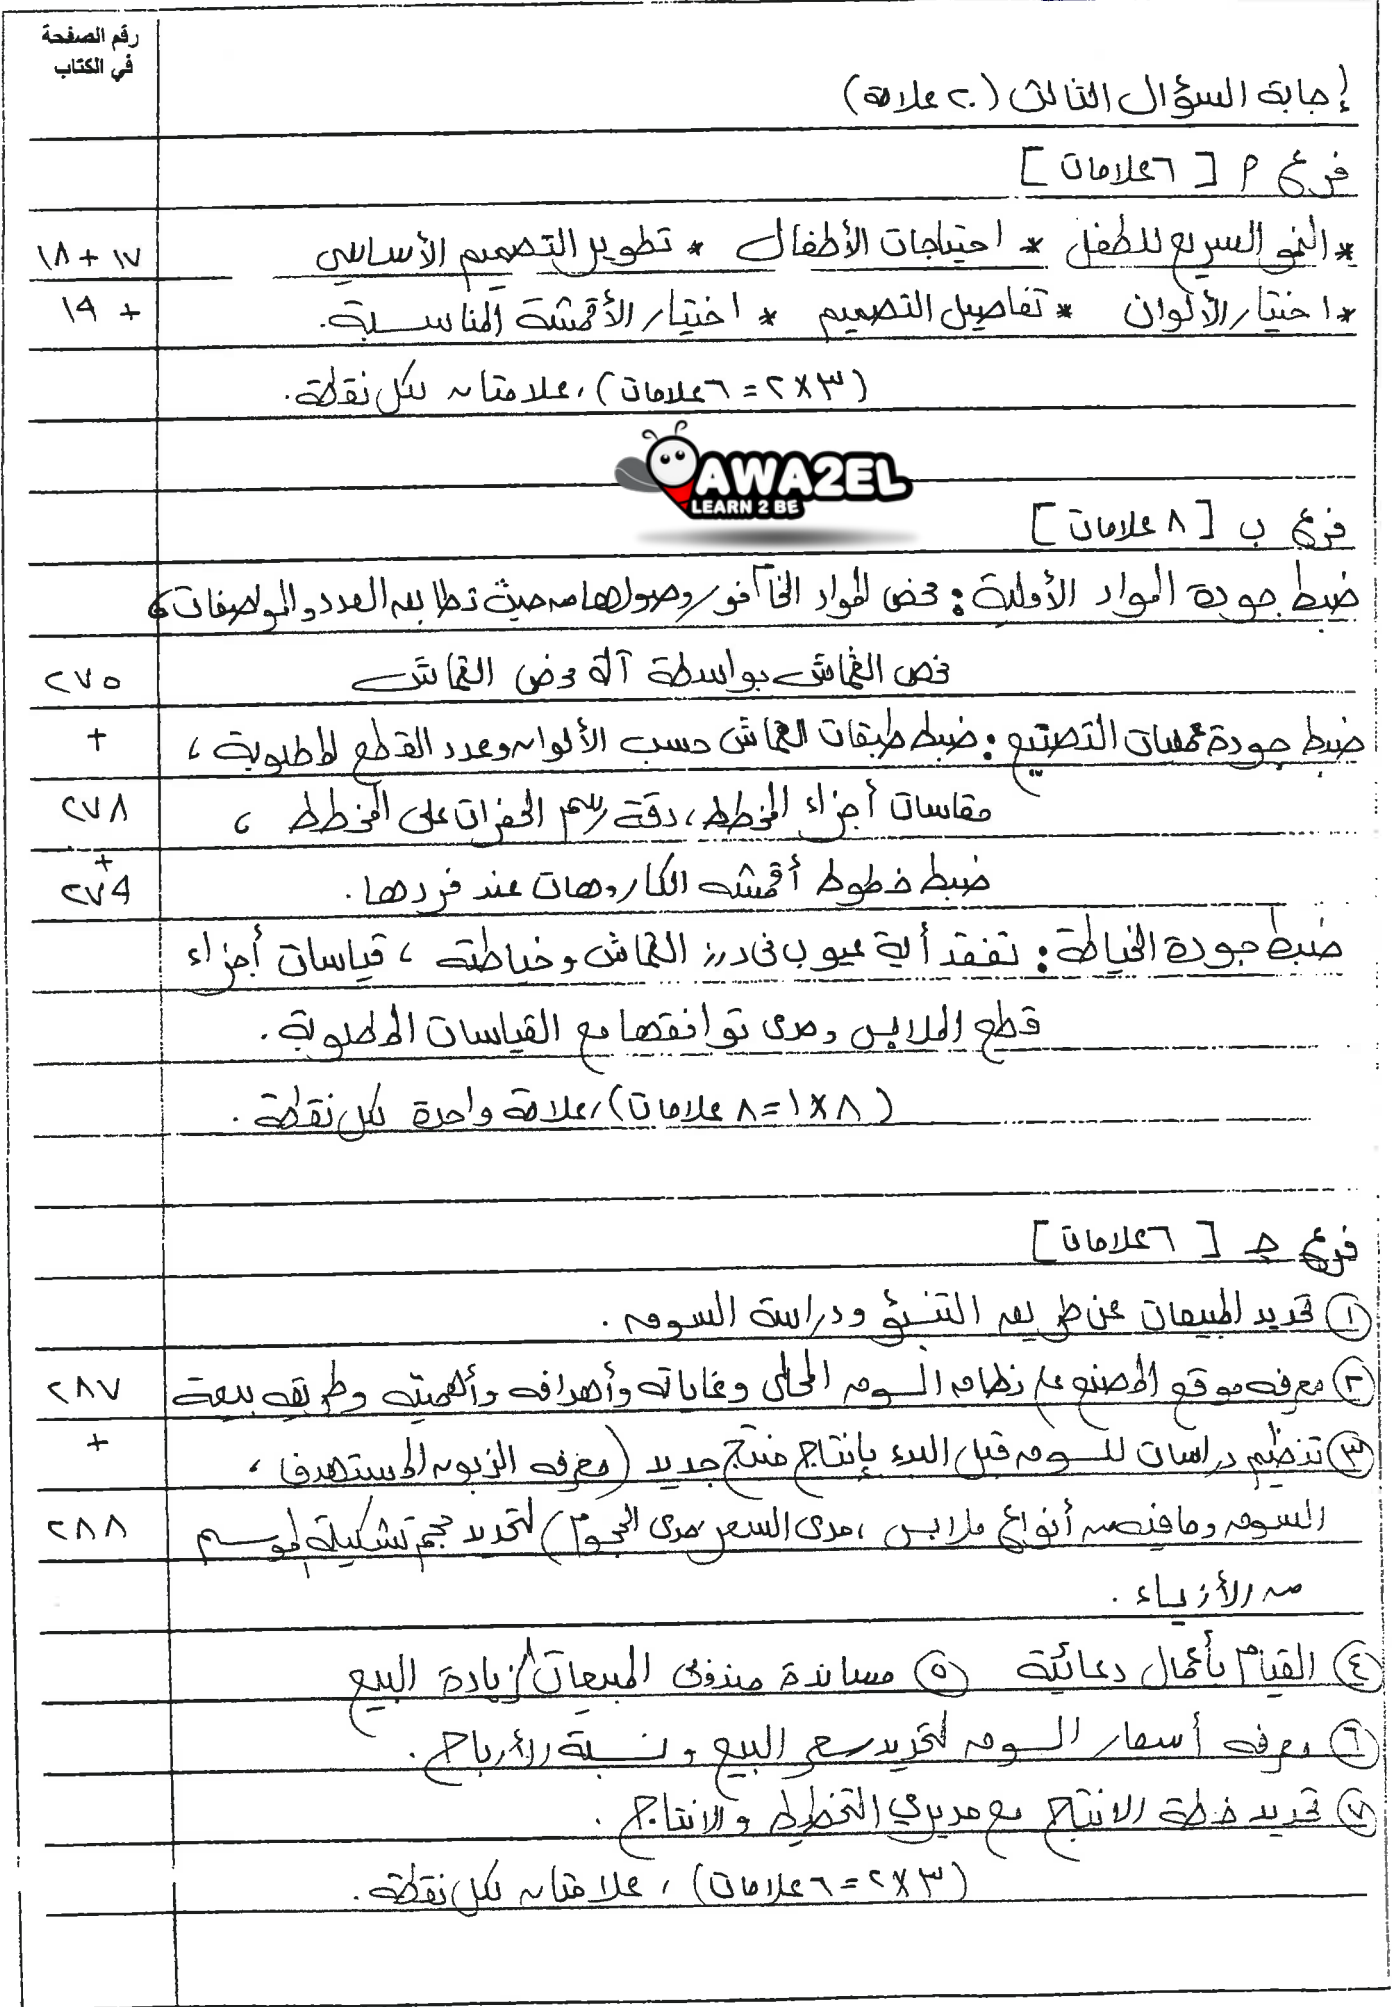 رقم الصفحة
في الكتاب
إجابة السؤال الثالث (٢٠ علامة)
فرع أ [ ٦ علامات ]
* النمو السريع للطفل * احتياجات الأطفال * تطوير التصميم الأساسي
١٧ + ١٨
* اختيار الألوان * تفاصيل التصميم * اختيار الأقمشة المناسبة.
+ ١٩
(٣×٢ = ٦ علامات)، علامتان لكل نقطة.
AWA2EL
LEARN 2 BE
فرع ب [ ٨ علامات ]
ضبط جودة المواد الأولية: فحص المواد الخام فور وصولها من حيث تطابق العدد والمواصفات،
فحص القماش بواسطة آلة فحص القماش
٢٧٥
ضبط جودة عمليات التصنيع: ضبط طبقات القماش حسب الألوان وعدد القطع المطلوبة،
+
مقاسات أجزاء المخطط، دقة رسم الحفرات على المخطط،
٢٧٨
ضبط خطوط أقمشه الكاروهات عند فردها.
+
٢٧٩
ضبط جودة الخياطة: تفقد أية عيوب في درز القماش وخياطته، قياسات أجزاء
قطع الملابس ومدى توافقها مع القياسات المطلوبة.
(٨×١ = ٨ علامات)، علامة واحدة لكل نقطة.
فرع جـ [ ٦ علامات ]
① تحديد المبيعات عن طريق التنبؤ ودراسة السوق.
② معرفه موقع المصنع من نظام السوق المحلي وغاياته وأهدافه وأهميته وطريقه بيعه
٢٨٧
③ تنظيم دراسات للسوق قبل البدء بإنتاج منتج جديد (معرفه الزبون المستهدف،
+
السوق وما فيه من أنواع ملابس، مدى السعر، مدى الحجوم) لتحديد حجم تشكيلة لموسم
٢٨٨
من الأزياء.
④ القيام بأعمال دعائية ⑤ مساندة مندوبي المبيعات لزيادة البيع
⑥ معرفه أسعار السوق لتحديد سعر البيع ونسبة الأرباح.
⑦ تحديد خطة الانتاج مع مديري التخطيط والانتاج.
(٣×٢ = ٦ علامات)، علامتان لكل نقطة.